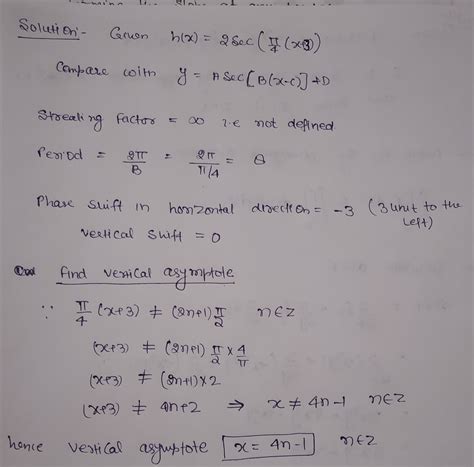 Solution:- Given h(x) = 2 Sec(π/4 (x+3))
Compare with y = A Sec[B(x-c)]+D
Streating factor = ∞ i.e not defined
Period = 2π/B = 2π/π/4 = 8
Phase Shift in horizontal direction = -3 (3 unit to the left)
Vertical Shift = 0
find vertical asymptote
∵ π/4 (x+3) ≠ (2n+1) π/2 n∈Z
(x+3) ≠ (2n+1) π/2 × 4/π
(x+3) ≠ (2n+1) × 2
(x+3) ≠ 4n+2 ⇒ x ≠ 4n-1 n∈Z
hence vertical asymptote x = 4n-1 n∈Z